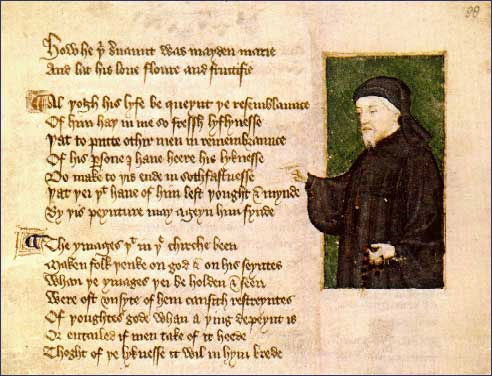 88
How he þͥ seruaunt was mayden marie
And lat his loue floure and fructifie
Al þogh his lyfe be queynt þe resemblaunce
Of him haþ in me so fressh lyflynesse
Þat to putte othir men in remembraunce
Of his ꝑsone I haue heere his lyknesse
Do make to þis ende in sothfastnesse
Þat þei þͭ haue of him lest þought & mynde
By þis peynture may ageyn him fynde
The ymages þͭ in þͤ chirche been
Maken folk þenke on god & on his seyntes
Whan þe ymages þei be holden & seen
Were oft vnsyte of hem causith restreyntes
Of þoughtes gode whan a þing depeynt is
Or entailed if men take of it heede
Thoght of þe lyknesse it wil in hym brede